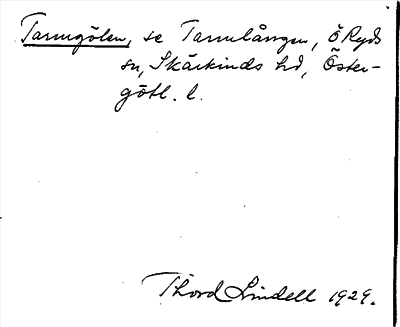 Tarmgölen, se Tarmlången, Ö Ryds
sn, Skärkinds hd, Öster-
götl. l.
Thord Lindell 1929.